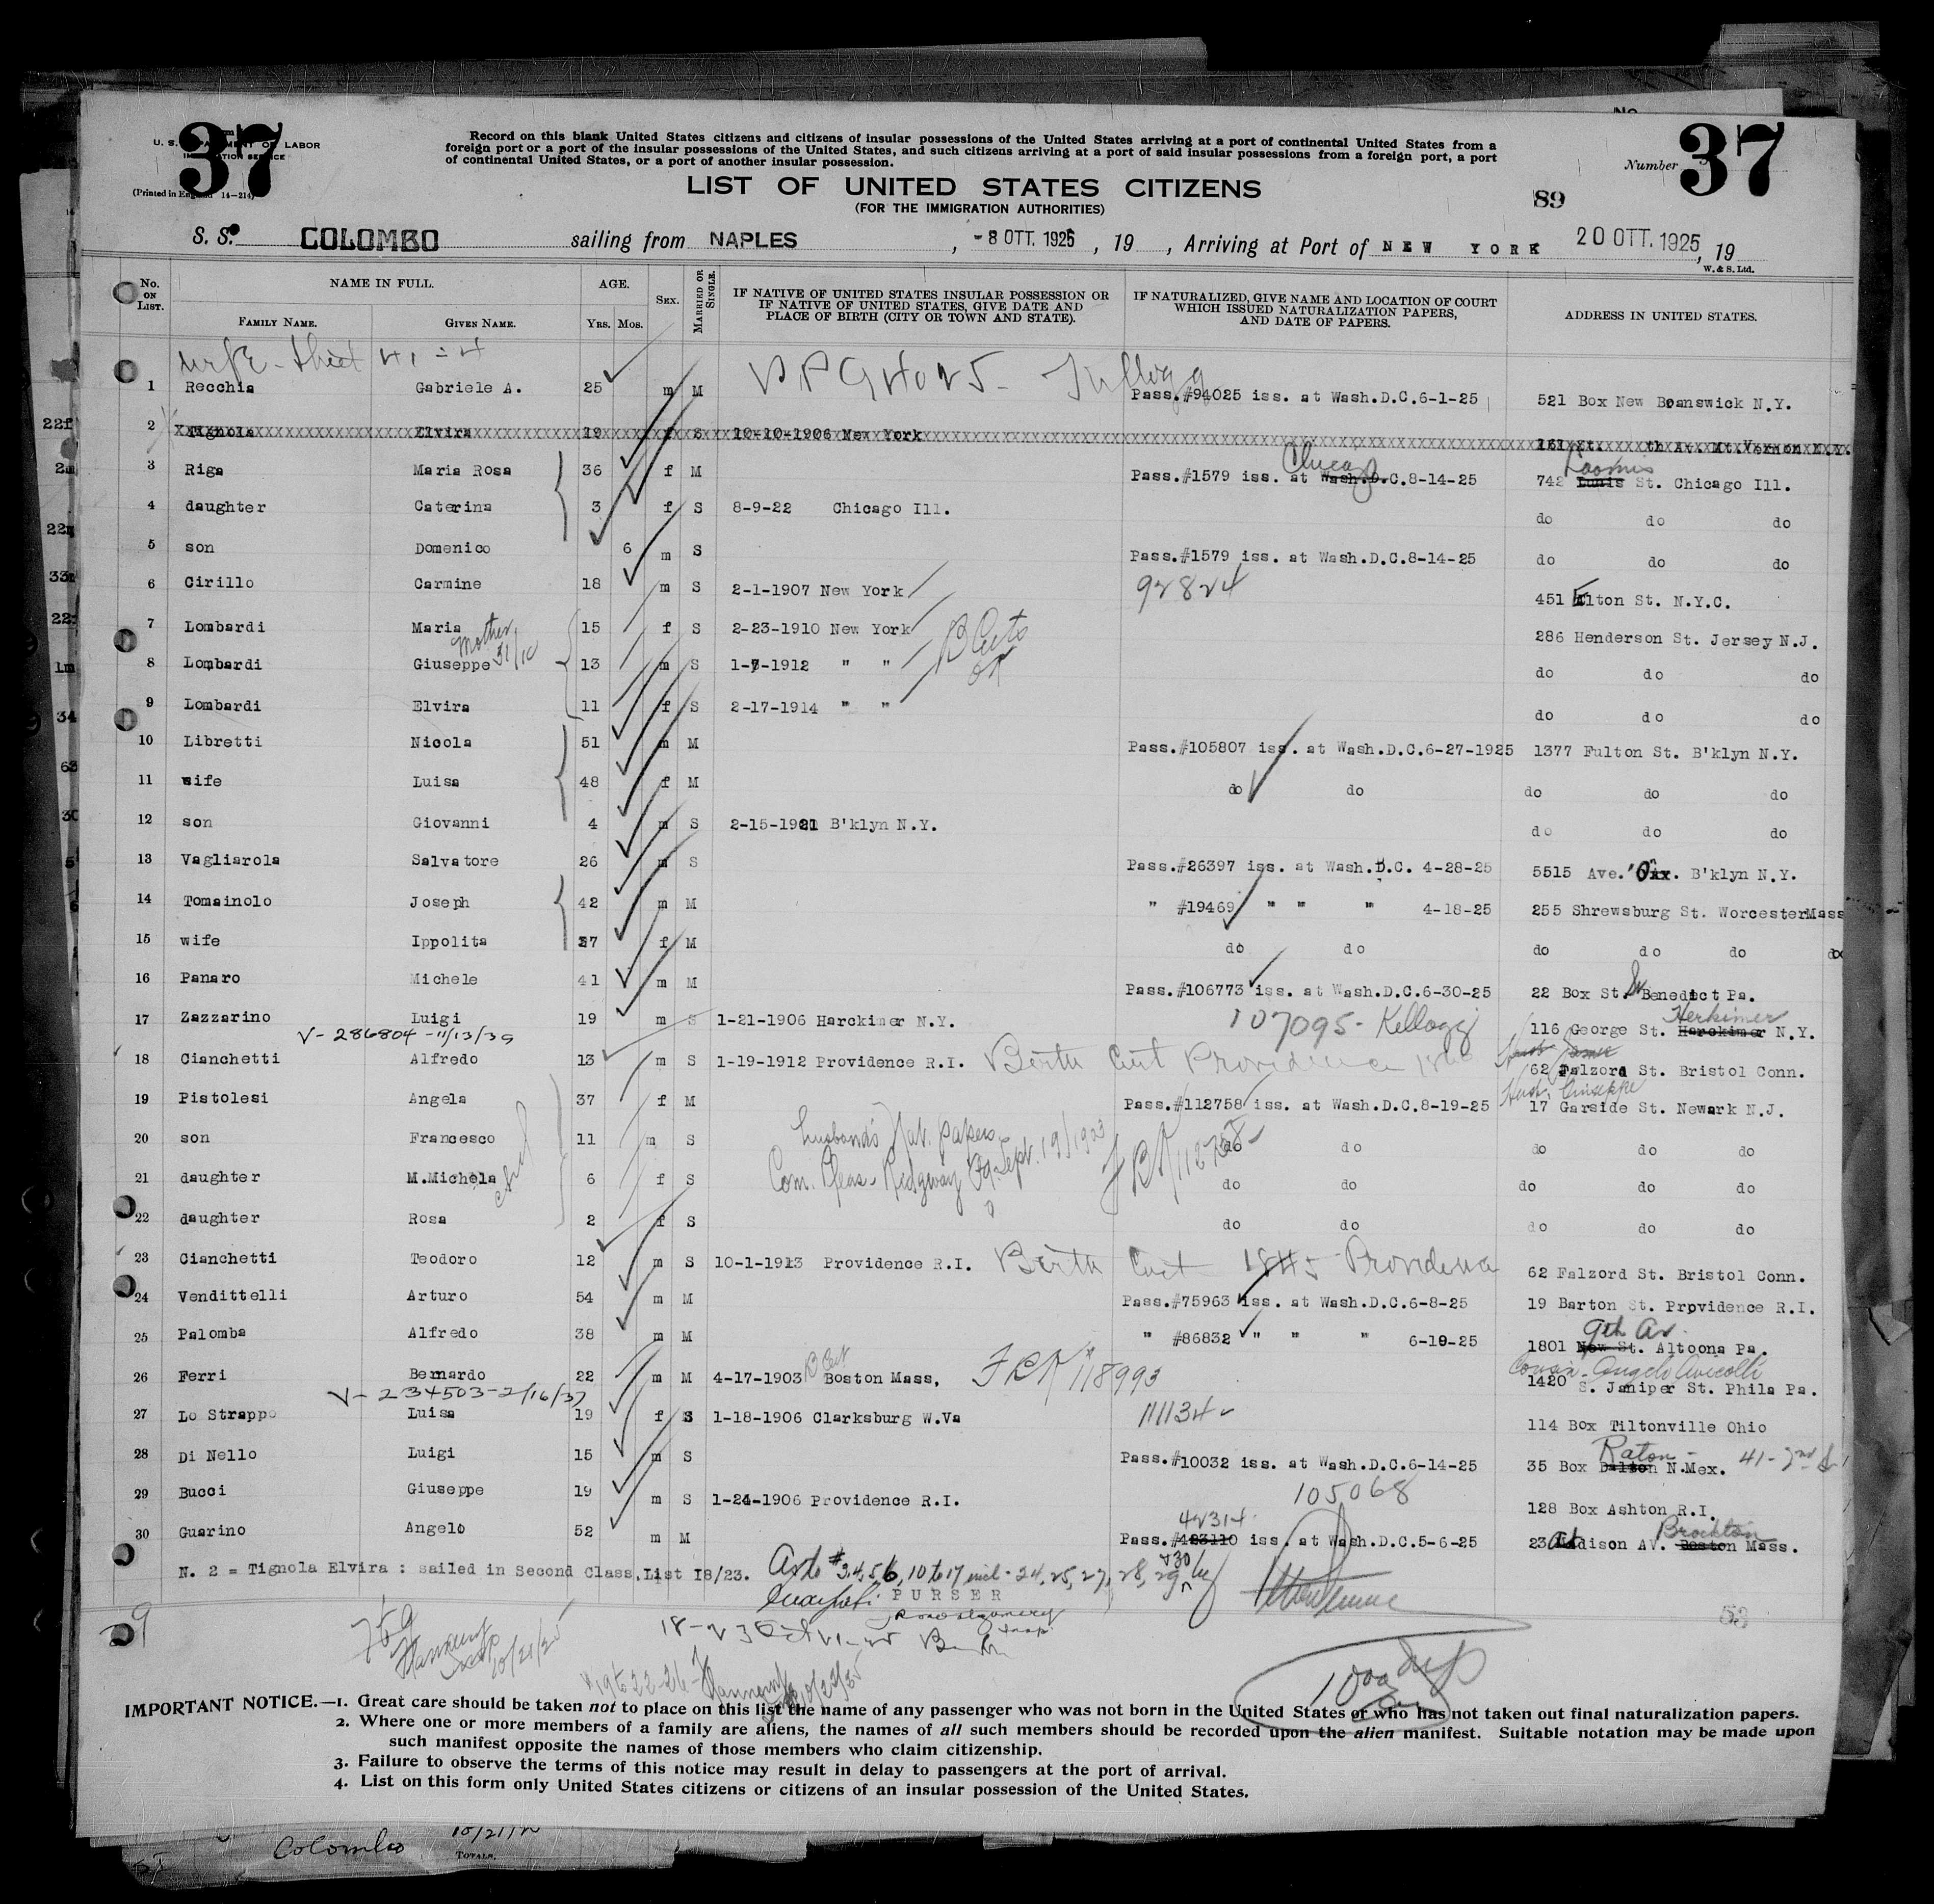 37
U. S. DEPARTMENT OF LABOR
IMMIGRATION SERVICE
(Printed in England 14—214)
Record on this blank United States citizens and citizens of insular possessions of the United States arriving at a port of continental United States from a
foreign port or a port of the insular possessions of the United States, and such citizens arriving at a port of said insular possessions from a foreign port, a port
of continental United States, or a port of another insular possession.
Number 37
LIST OF UNITED STATES CITIZENS
(FOR THE IMMIGRATION AUTHORITIES)
89
S. S. COLOMBO sailing from NAPLES, -8 OTT. 1925, 19 , Arriving at Port of NEW YORK 20 OTT. 1925, 19
W. & S. Ltd.
No. ON LIST. NAME IN FULL. AGE. SEX. MARRIED OR SINGLE. IF NATIVE OF UNITED STATES INSULAR POSSESSION OR IF NATIVE OF UNITED STATES, GIVE DATE AND PLACE OF BIRTH (CITY OR TOWN AND STATE). IF NATURALIZED, GIVE NAME AND LOCATION OF COURT WHICH ISSUED NATURALIZATION PAPERS, AND DATE OF PAPERS. ADDRESS IN UNITED STATES.
FAMILY NAME. GIVEN NAME. YRS. MOS.
wife - sheet 41 = 4
1 Recchia Gabriele A. 25 m M Pass.#94025 iss. at Wash.D.C.6-1-25 521 Box New Branswick N.Y.
2 Tignola Elvira 19 f S 10-10-1906 New York 161 St. th Av. Mt.Vernon N.Y.
Chicago Loomis
3 Riga Maria Rosa 36 f M Pass.#1579 iss. at Wash.D.C.8-14-25 742 St. Chicago Ill.
4 daughter Caterina 3 f S 8-9-22 Chicago Ill. do do do
5 son Domenico 6 m S Pass.#1579 iss. at Wash.D.C.8-14-25 do do do
6 Cirillo Carmine 18 m S 2-1-1907 New York 92824 451 Elton St. N.Y.C.
7 Lombardi Maria 15 f S 2-23-1910 New York 286 Henderson St. Jersey N.J.
Mother 31/10 B Certs
8 Lombardi Giuseppe 13 m S 1-7-1912 " " do do do
9 Lombardi Elvira 11 f S 2-17-1914 " " do do do
10 Libretti Nicola 51 m M Pass.#105807 iss. at Wash.D.C.6-27-1925 1377 Fulton St. B'klyn N.Y.
11 wife Luisa 48 f M do do do do do
12 son Giovanni 4 m S 2-15-1921 B'klyn N.Y. do do do
13 Vagliarola Salvatore 26 m S Pass.#26397 iss. at Wash.D.C. 4-28-25 5515 Ave. B'klyn N.Y.
14 Tomainolo Joseph 42 m M " #19469 " " " 4-18-25 255 Shrewsburg St. Worcester Mass
15 wife Ippolita 37 f M do do do do do do
16 Panaro Michele 41 m M Pass.#106773 iss. at Wash.D.C.6-30-25 22 Box St. Benedict Pa.
17 Zazzarino Luigi 19 m S 1-21-1906 Harckimer N.Y. 107095 - Kellogg 116 George St. Harckimer N.Y.
Herkimer
V- 286804 - 11/13/39
18 Cianchetti Alfredo 13 m S 1-19-1912 Providence R.I. Birth Cert Providence 62 Falzord St. Bristol Conn.
Husb. Giuseppe
19 Pistolesi Angela 37 f M Pass.#112758 iss. at Wash.D.C.8-19-25 17 Garside St. Newark N.J.
20 son Francesco 11 m S husband's Nat. papers do do do do do
21 daughter M.Michela 6 f S Com. Pleas - Ridgway Pa. Sept. 19/1923 do do do do do
22 daughter Rosa 2 f S do do do do do
23 Cianchetti Teodoro 12 m S 10-1-1913 Providence R.I. Birth Cert 1845 Providence 62 Falzord St. Bristol Conn.
24 Vendittelli Arturo 54 m M Pass.#75963 iss. at Wash.D.C.6-8-25 19 Barton St. Providence R.I.
25 Palomba Alfredo 38 m M " #86832 " " " 6-19-25 1801 New St. Altoona Pa.
9th Av.
Cousin - Angelo
26 Ferri Bernardo 22 m M 4-17-1903 B Cert Boston Mass, #118993 1420 S. Janiper St. Phila Pa.
V- 234503 - 2/16/37
27 Lo Strappo Luisa 19 f S 1-18-1906 Clarksburg W.Va 111134 114 Box Tiltonville Ohio
28 Di Nello Luigi 15 m S Pass.#10032 iss. at Wash.D.C.6-14-25 35 Box Dalton N.Mex.
Raton - 41 - 2nd St
29 Bucci Giuseppe 19 m S 1-24-1906 Providence R.I. 105068 128 Box Ashton R.I.
42314 Brockton
30 Guarino Angelo 52 m M Pass.#423110 iss. at Wash.D.C.5-6-25 23 Addison AV. Boston Mass.
N. 2 = Tignola Elvira : sailed in Second Class, List I8/23. As to # 3,4,5,6, 10 to 17 incl - 24, 25, 27, 28, 29 & 30
PURSER
53
18-23 Oct 21-25
10/21/25
#19 to 22-26
IMPORTANT NOTICE.—1. Great care should be taken not to place on this list the name of any passenger who was not born in the United States or who has not taken out final naturalization papers.
2. Where one or more members of a family are aliens, the names of all such members should be recorded upon the alien manifest. Suitable notation may be made upon
such manifest opposite the names of those members who claim citizenship.
3. Failure to observe the terms of this notice may result in delay to passengers at the port of arrival.
4. List on this form only United States citizens or citizens of an insular possession of the United States.
Colombo
TOTALS.